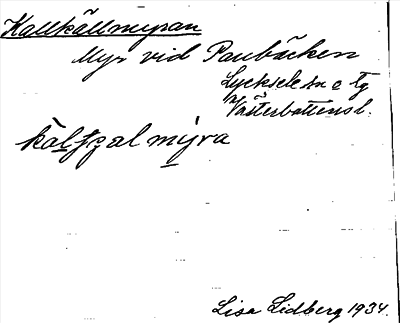 Kallkällmyran
Myr vid Paubäcken
Lycksele sn o tg
Västerbottensl.
mýra
Lisa Lidberg 1934.